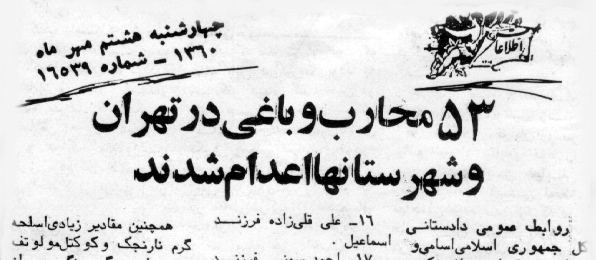 چهارشنبه هشتم مهر ماه
۱۳۶۰ ــ شماره ۱۶۵۳۹
اطلاعات
۵۳ محارب و باغی در تهران
و شهرستانها اعدام شدند
روابط عمومی دادستانی
کل جمهوری اسلامی اسامی و
۱۶ــ علی قلی‌زاده فرزنــد
اسماعیل .
همچنین مقادیر زیادی اسلحه
گرم نارنجک و کوکتل مولوتف